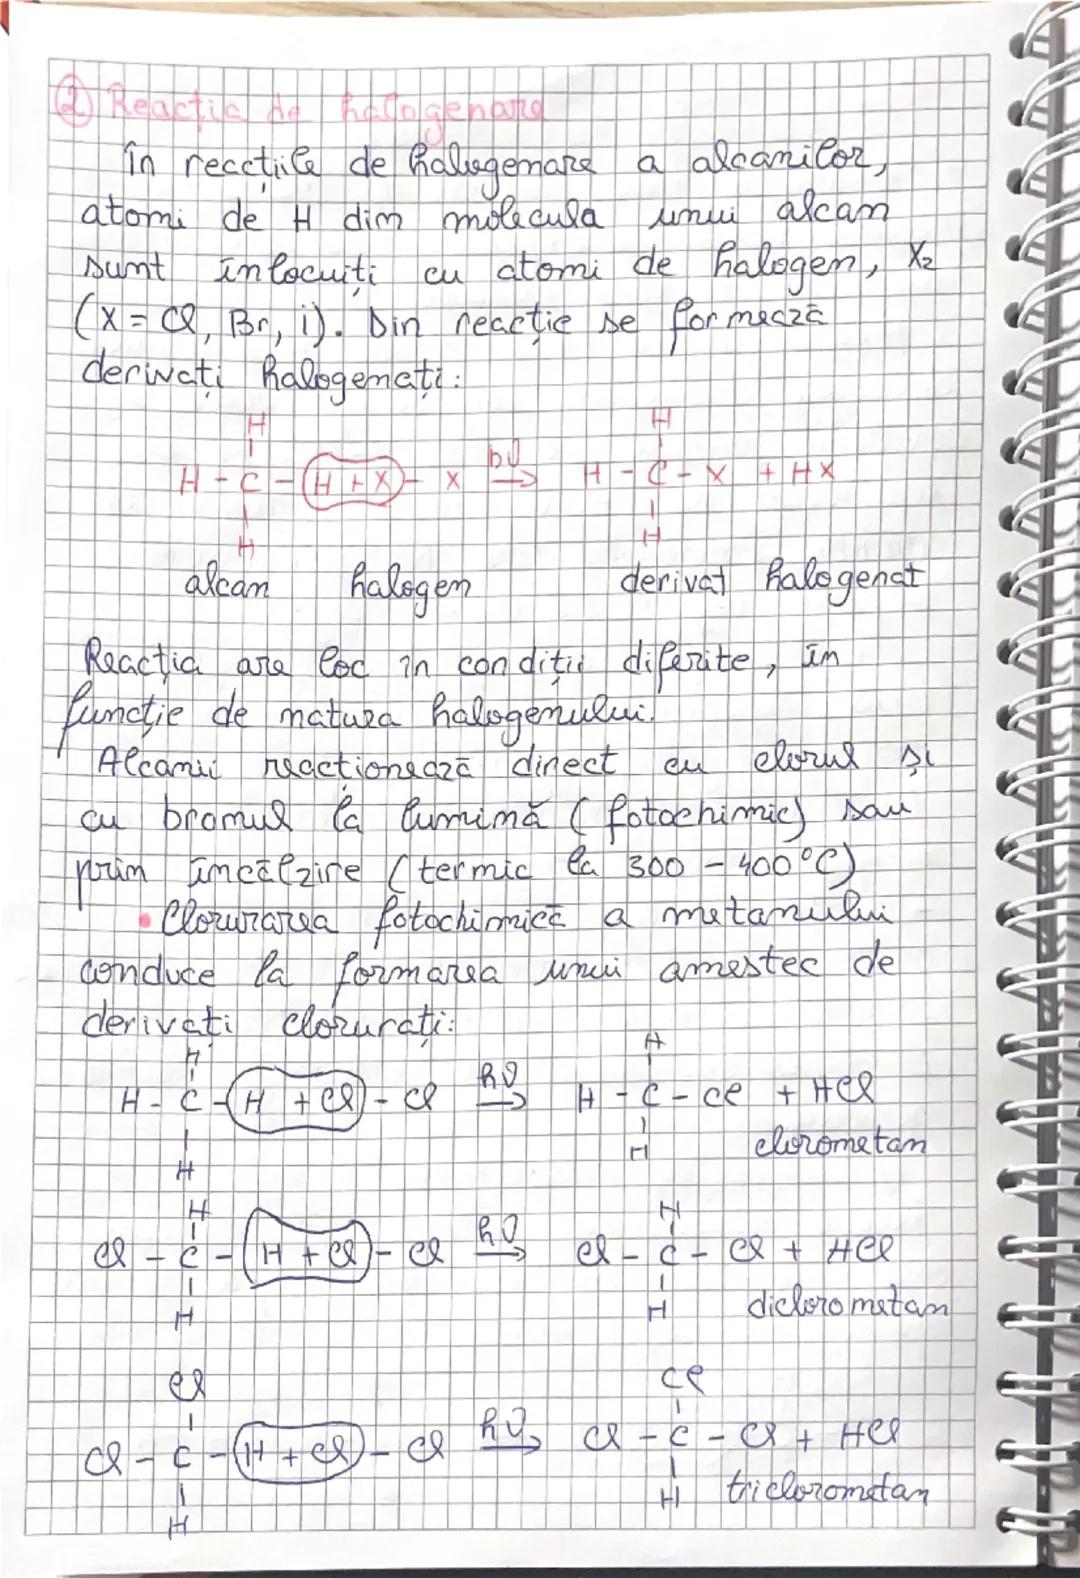 ② Reacția de halogenare
În reacțiile de halogenare a alcanilor,
atomi de H din molecula unui alcan
sunt înlocuiți cu atomi de halogen, X₂
(X = Cl, Br, i). Din reacție se formează
derivați halogenați:
H H
H - C - (H + X) - X hν→ H - C - X + HX
H H
alcan halogen derivat halogenat
Reacția are loc în condiții diferite, în
funcție de natura halogenului.
Alcanii reacționează direct cu clorul și
cu bromul la lumină (fotochimic) sau
prin încălzire (termic la 300 - 400°C)
• Clorurarea fotochimică a metanului
conduce la formarea unui amestec de
derivați clorurați:
H H
H - C - (H + Cl) - Cl hν→ H - C - Cl + HCl
H H clorometan
H H
Cl - C - (H + Cl) - Cl hν→ Cl - C - Cl + HCl
H H diclorometan
Cl Cl
Cl - C - (H + Cl) - Cl hν→ Cl - C - Cl + HCl
H H triclorometan